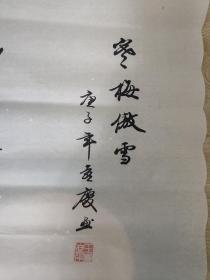 寒梅傲雪
庚子年春庆画